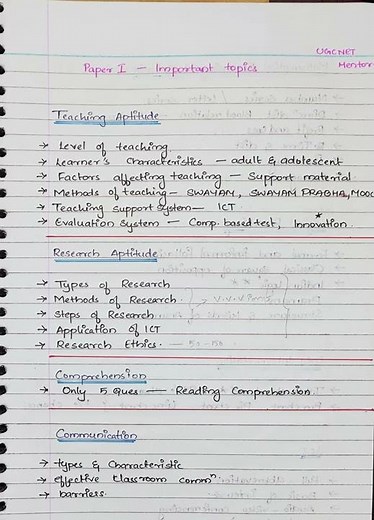 UGCNET
Mentor
Paper I — Important topics
Teaching Aptitude
→ Level of teaching.
→ Learner's Characteristics — adult & adolescent
→ Factors affecting teaching — Support material
→ Methods of teaching — SWAYAM, SWAYAM PRABHA, MOOC
→ Teaching Support System — ICT.
→ Evaluation System — Comp. based test, Innovation.
Research Aptitude
→ Types of Research
→ Methods of Research.
→ Steps of Research
→ Application of ICT
→ Research Ethics.
Comprehension
→ Only 5 Ques — Reading Comprehension.
Communication
→ types & Characteristic
→ effective Classroom commⁿ
→ barriers.